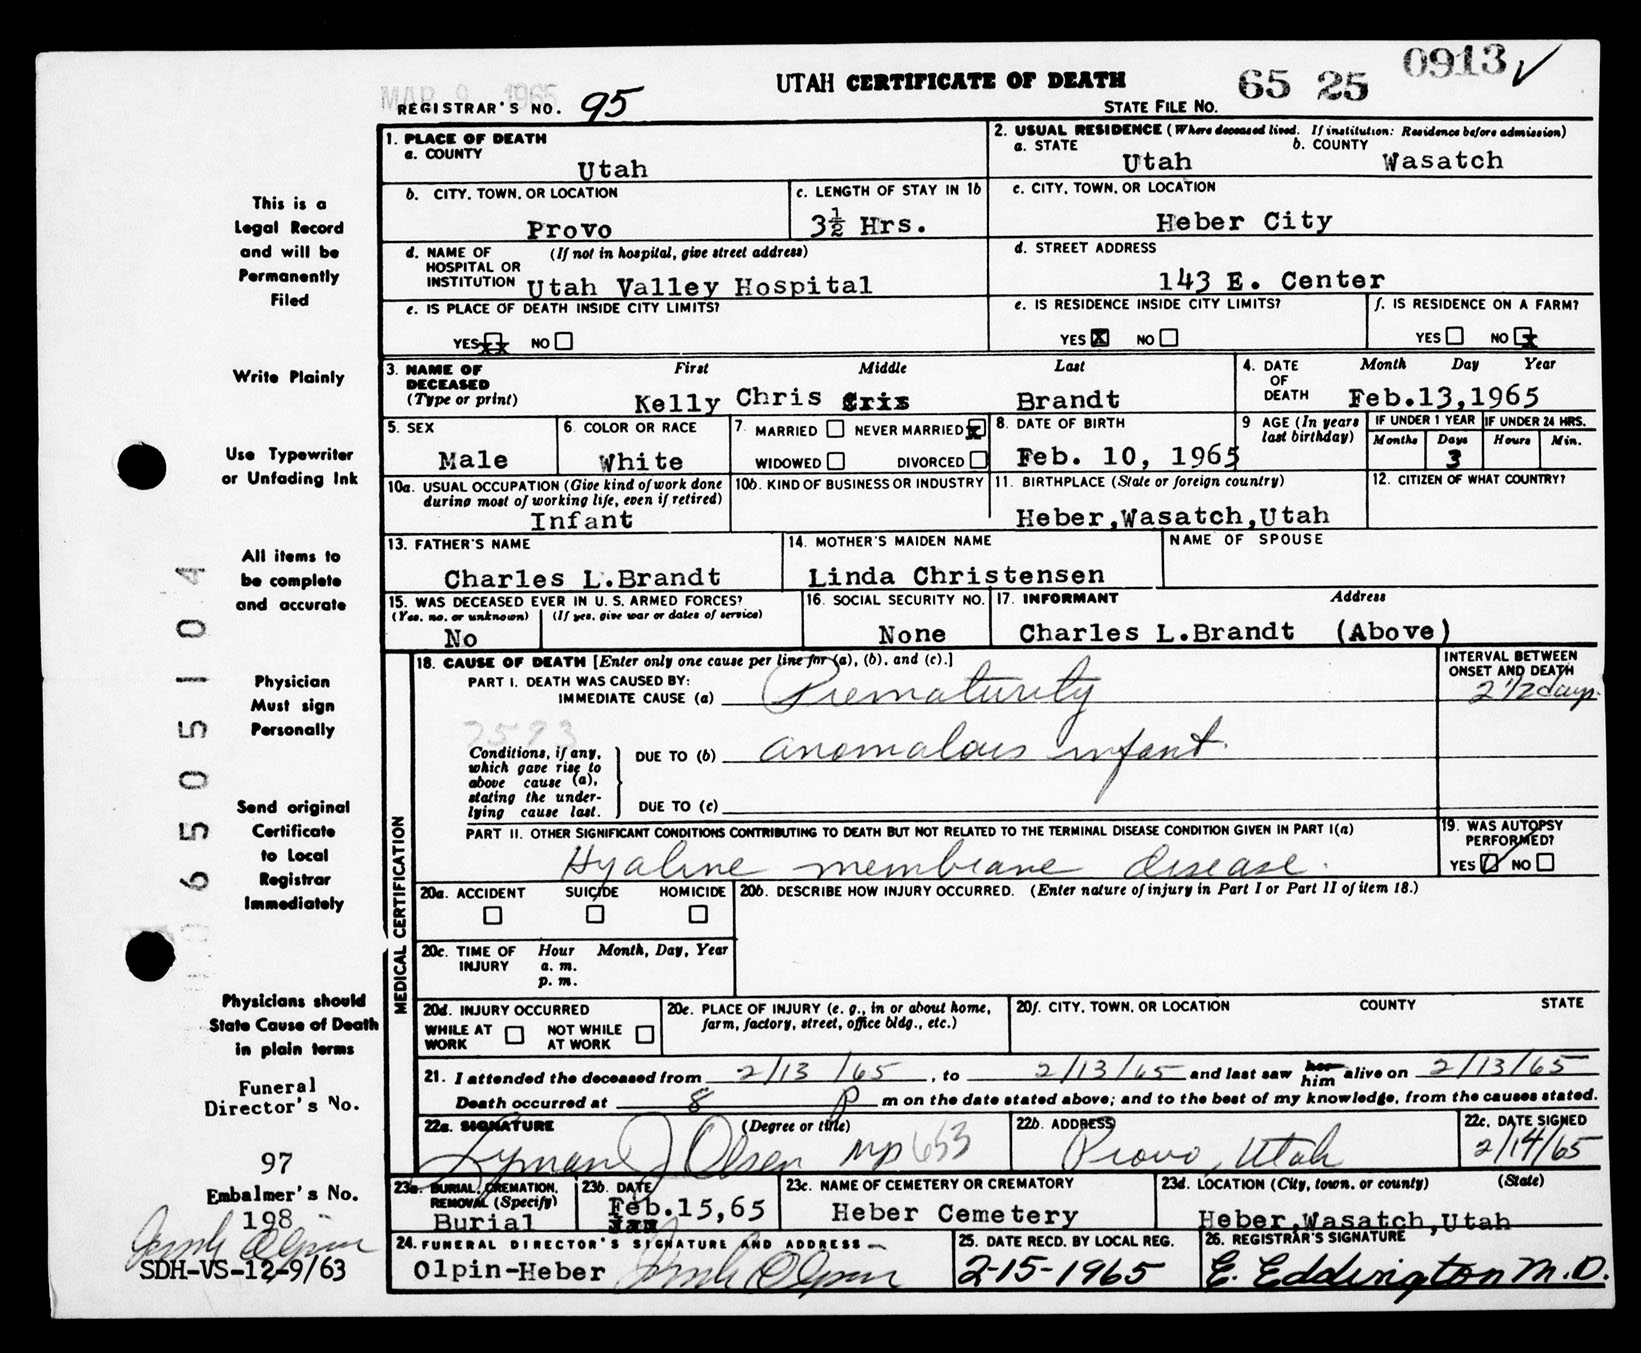 UTAH CERTIFICATE OF DEATH
65 25 0913 ✓
MAR 9 1965
REGISTRAR'S NO. 95
STATE FILE NO.
1. PLACE OF DEATH
a. COUNTY
Utah
2. USUAL RESIDENCE (Where deceased lived. If institution: Residence before admission)
a. STATE
Utah
b. COUNTY
Wasatch
b. CITY, TOWN, OR LOCATION
Provo
c. LENGTH OF STAY IN 1b
3½ Hrs.
c. CITY, TOWN, OR LOCATION
Heber City
d. NAME OF HOSPITAL OR INSTITUTION
(If not in hospital, give street address)
Utah Valley Hospital
d. STREET ADDRESS
143 E. Center
e. IS PLACE OF DEATH INSIDE CITY LIMITS?
YES xx NO
e. IS RESIDENCE INSIDE CITY LIMITS?
YES X NO
f. IS RESIDENCE ON A FARM?
YES NO x
3. NAME OF DECEASED
(Type or print)
First Middle Last
Kelly Chris Cris Brandt
4. DATE OF DEATH
Month Day Year
Feb.13,1965
5. SEX
Male
6. COLOR OR RACE
White
7. MARRIED NEVER MARRIED x
WIDOWED DIVORCED
8. DATE OF BIRTH
Feb. 10, 1965
9 AGE (In years last birthday)
IF UNDER 1 YEAR
Months Days
3
IF UNDER 24 HRS.
Hours Min.
10a. USUAL OCCUPATION (Give kind of work done during most of working life, even if retired)
Infant
10b. KIND OF BUSINESS OR INDUSTRY
11. BIRTHPLACE (State or foreign country)
Heber,Wasatch,Utah
12. CITIZEN OF WHAT COUNTRY?
13. FATHER'S NAME
Charles L.Brandt
14. MOTHER'S MAIDEN NAME
Linda Christensen
NAME OF SPOUSE
15. WAS DECEASED EVER IN U. S. ARMED FORCES?
(Yes, no, or unknown) (If yes, give war or dates of service)
No
16. SOCIAL SECURITY NO.
None
17. INFORMANT Address
Charles L.Brandt (Above)
MEDICAL CERTIFICATION
18. CAUSE OF DEATH [Enter only one cause per line for (a), (b), and (c).]
INTERVAL BETWEEN ONSET AND DEATH
PART I. DEATH WAS CAUSED BY:
IMMEDIATE CAUSE (a) Prematurity
2 1/2 days.
Conditions, if any, which gave rise to above cause (a), stating the underlying cause last.
DUE TO (b) anomalous infant.
DUE TO (c)
PART II. OTHER SIGNIFICANT CONDITIONS CONTRIBUTING TO DEATH BUT NOT RELATED TO THE TERMINAL DISEASE CONDITION GIVEN IN PART I(a)
Hyaline membrane disease.
19. WAS AUTOPSY PERFORMED?
YES ✓ NO
20a. ACCIDENT SUICIDE HOMICIDE
20b. DESCRIBE HOW INJURY OCCURRED. (Enter nature of injury in Part I or Part II of item 18.)
20c. TIME OF INJURY
Hour Month, Day, Year
a. m.
p. m.
20d. INJURY OCCURRED
WHILE AT WORK NOT WHILE AT WORK
20e. PLACE OF INJURY (e. g., in or about home, farm, factory, street, office bldg., etc.)
20f. CITY, TOWN, OR LOCATION COUNTY STATE
21. I attended the deceased from 2/13/65, to 2/13/65 and last saw her him alive on 2/13/65
Death occurred at 8 P m on the date stated above; and to the best of my knowledge, from the causes stated.
22a. SIGNATURE (Degree or title)
Lyman J Olsen MD 653
22b. ADDRESS
Provo, Utah
22c. DATE SIGNED
2/14/65
23a. BURIAL, CREMATION, REMOVAL (Specify)
Burial
23b. DATE
Feb.15,65
Jan
23c. NAME OF CEMETERY OR CREMATORY
Heber Cemetery
23d. LOCATION (City, town, or county) (State)
Heber,Wasatch,Utah
24. FUNERAL DIRECTOR'S SIGNATURE AND ADDRESS
Olpin-Heber
25. DATE RECD. BY LOCAL REG.
2-15-1965
26. REGISTRAR'S SIGNATURE
E. Eddington M.D.
This is a
Legal Record
and will be
Permanently
Filed
Write Plainly
Use Typewriter
or Unfading Ink
All items to
be complete
and accurate
Physician
Must sign
Personally
Send original
Certificate
to Local
Registrar
Immediately
Physicians should
State Cause of Death
in plain terms
Funeral
Director's No.
97
Embalmer's No.
198
SDH-VS-12-9/63
65 05104